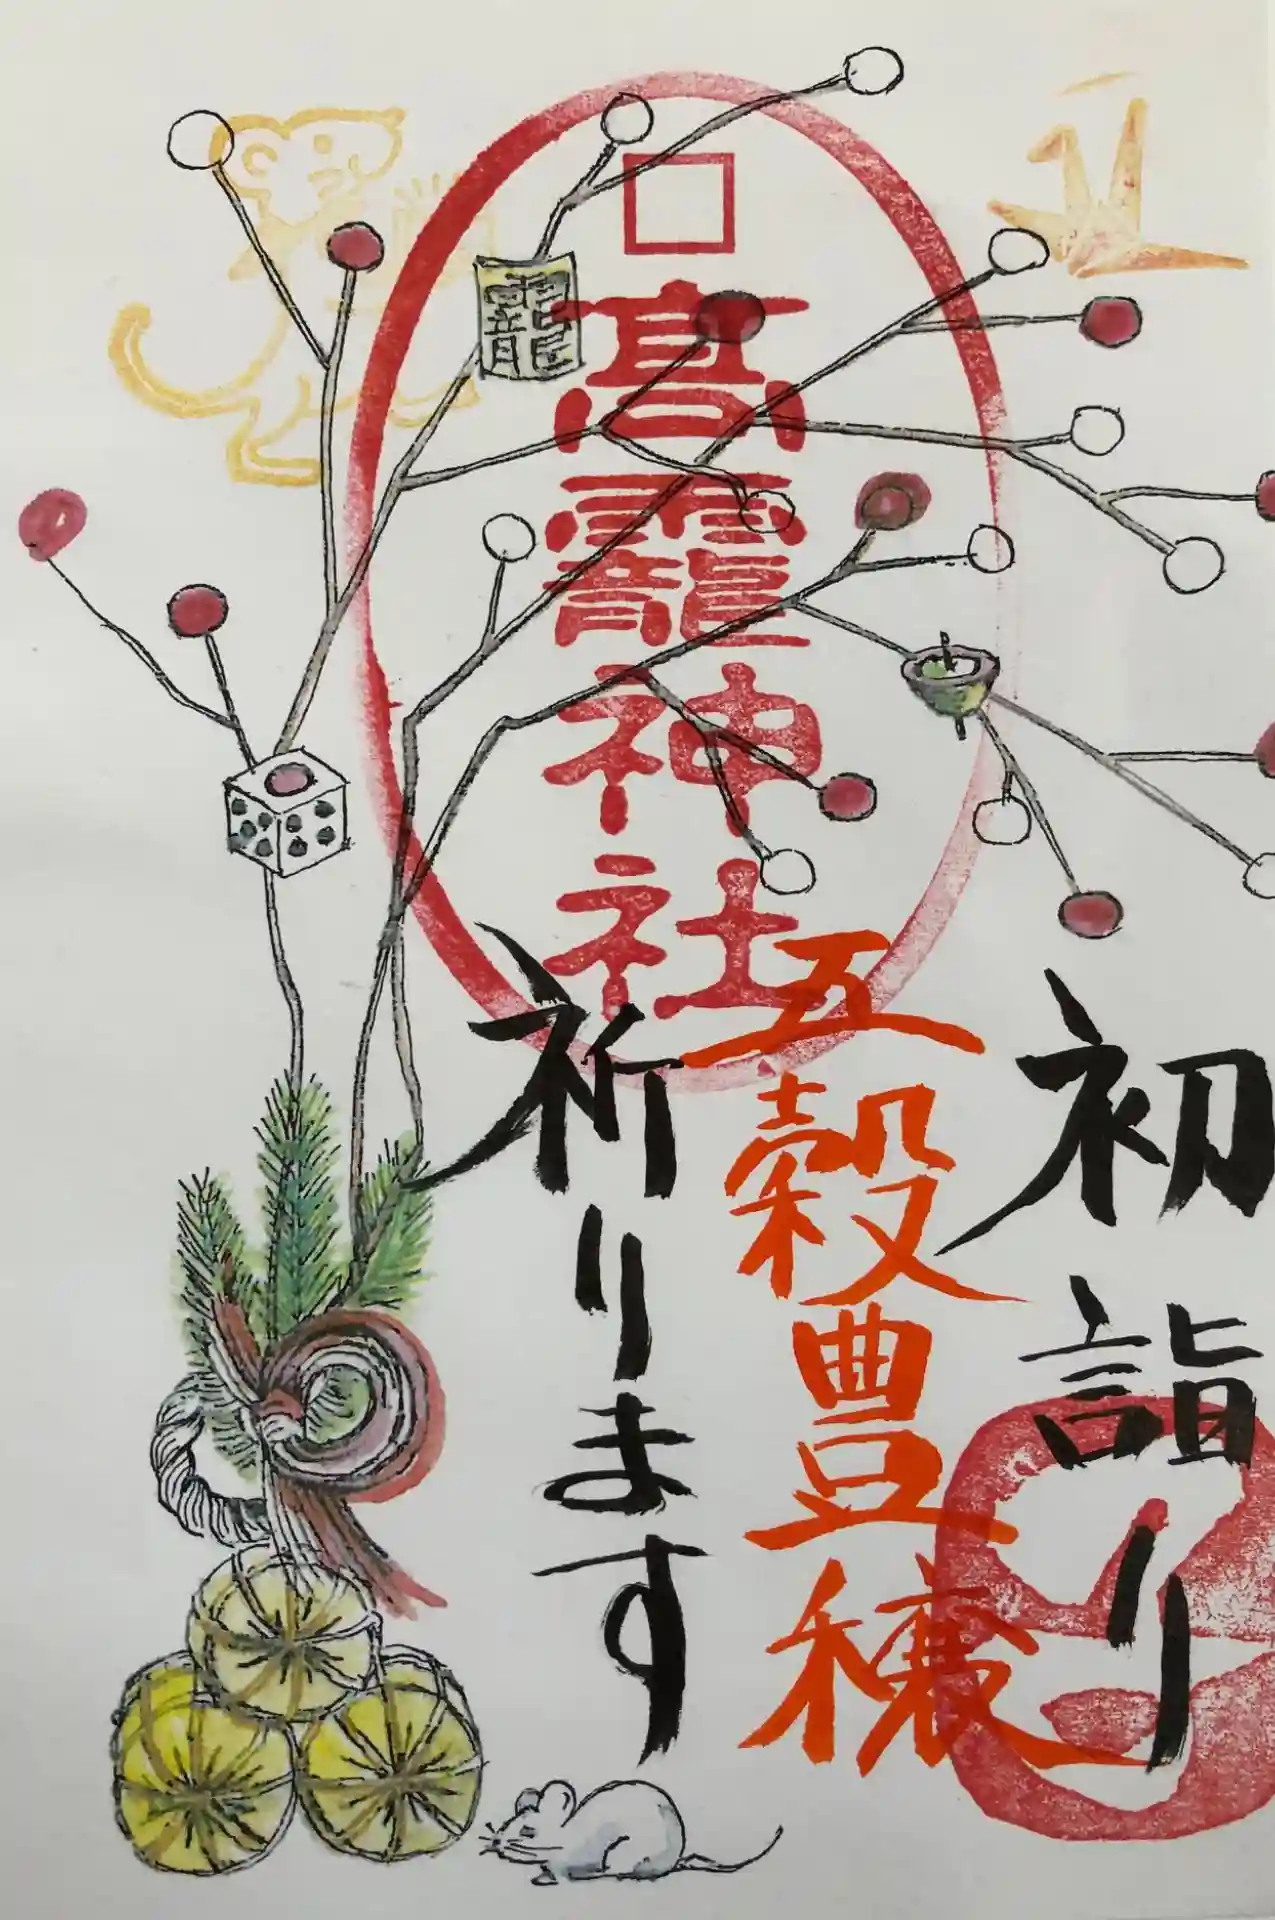 初詣り
五穀豊穣
祈ります
髙龗神社
龗